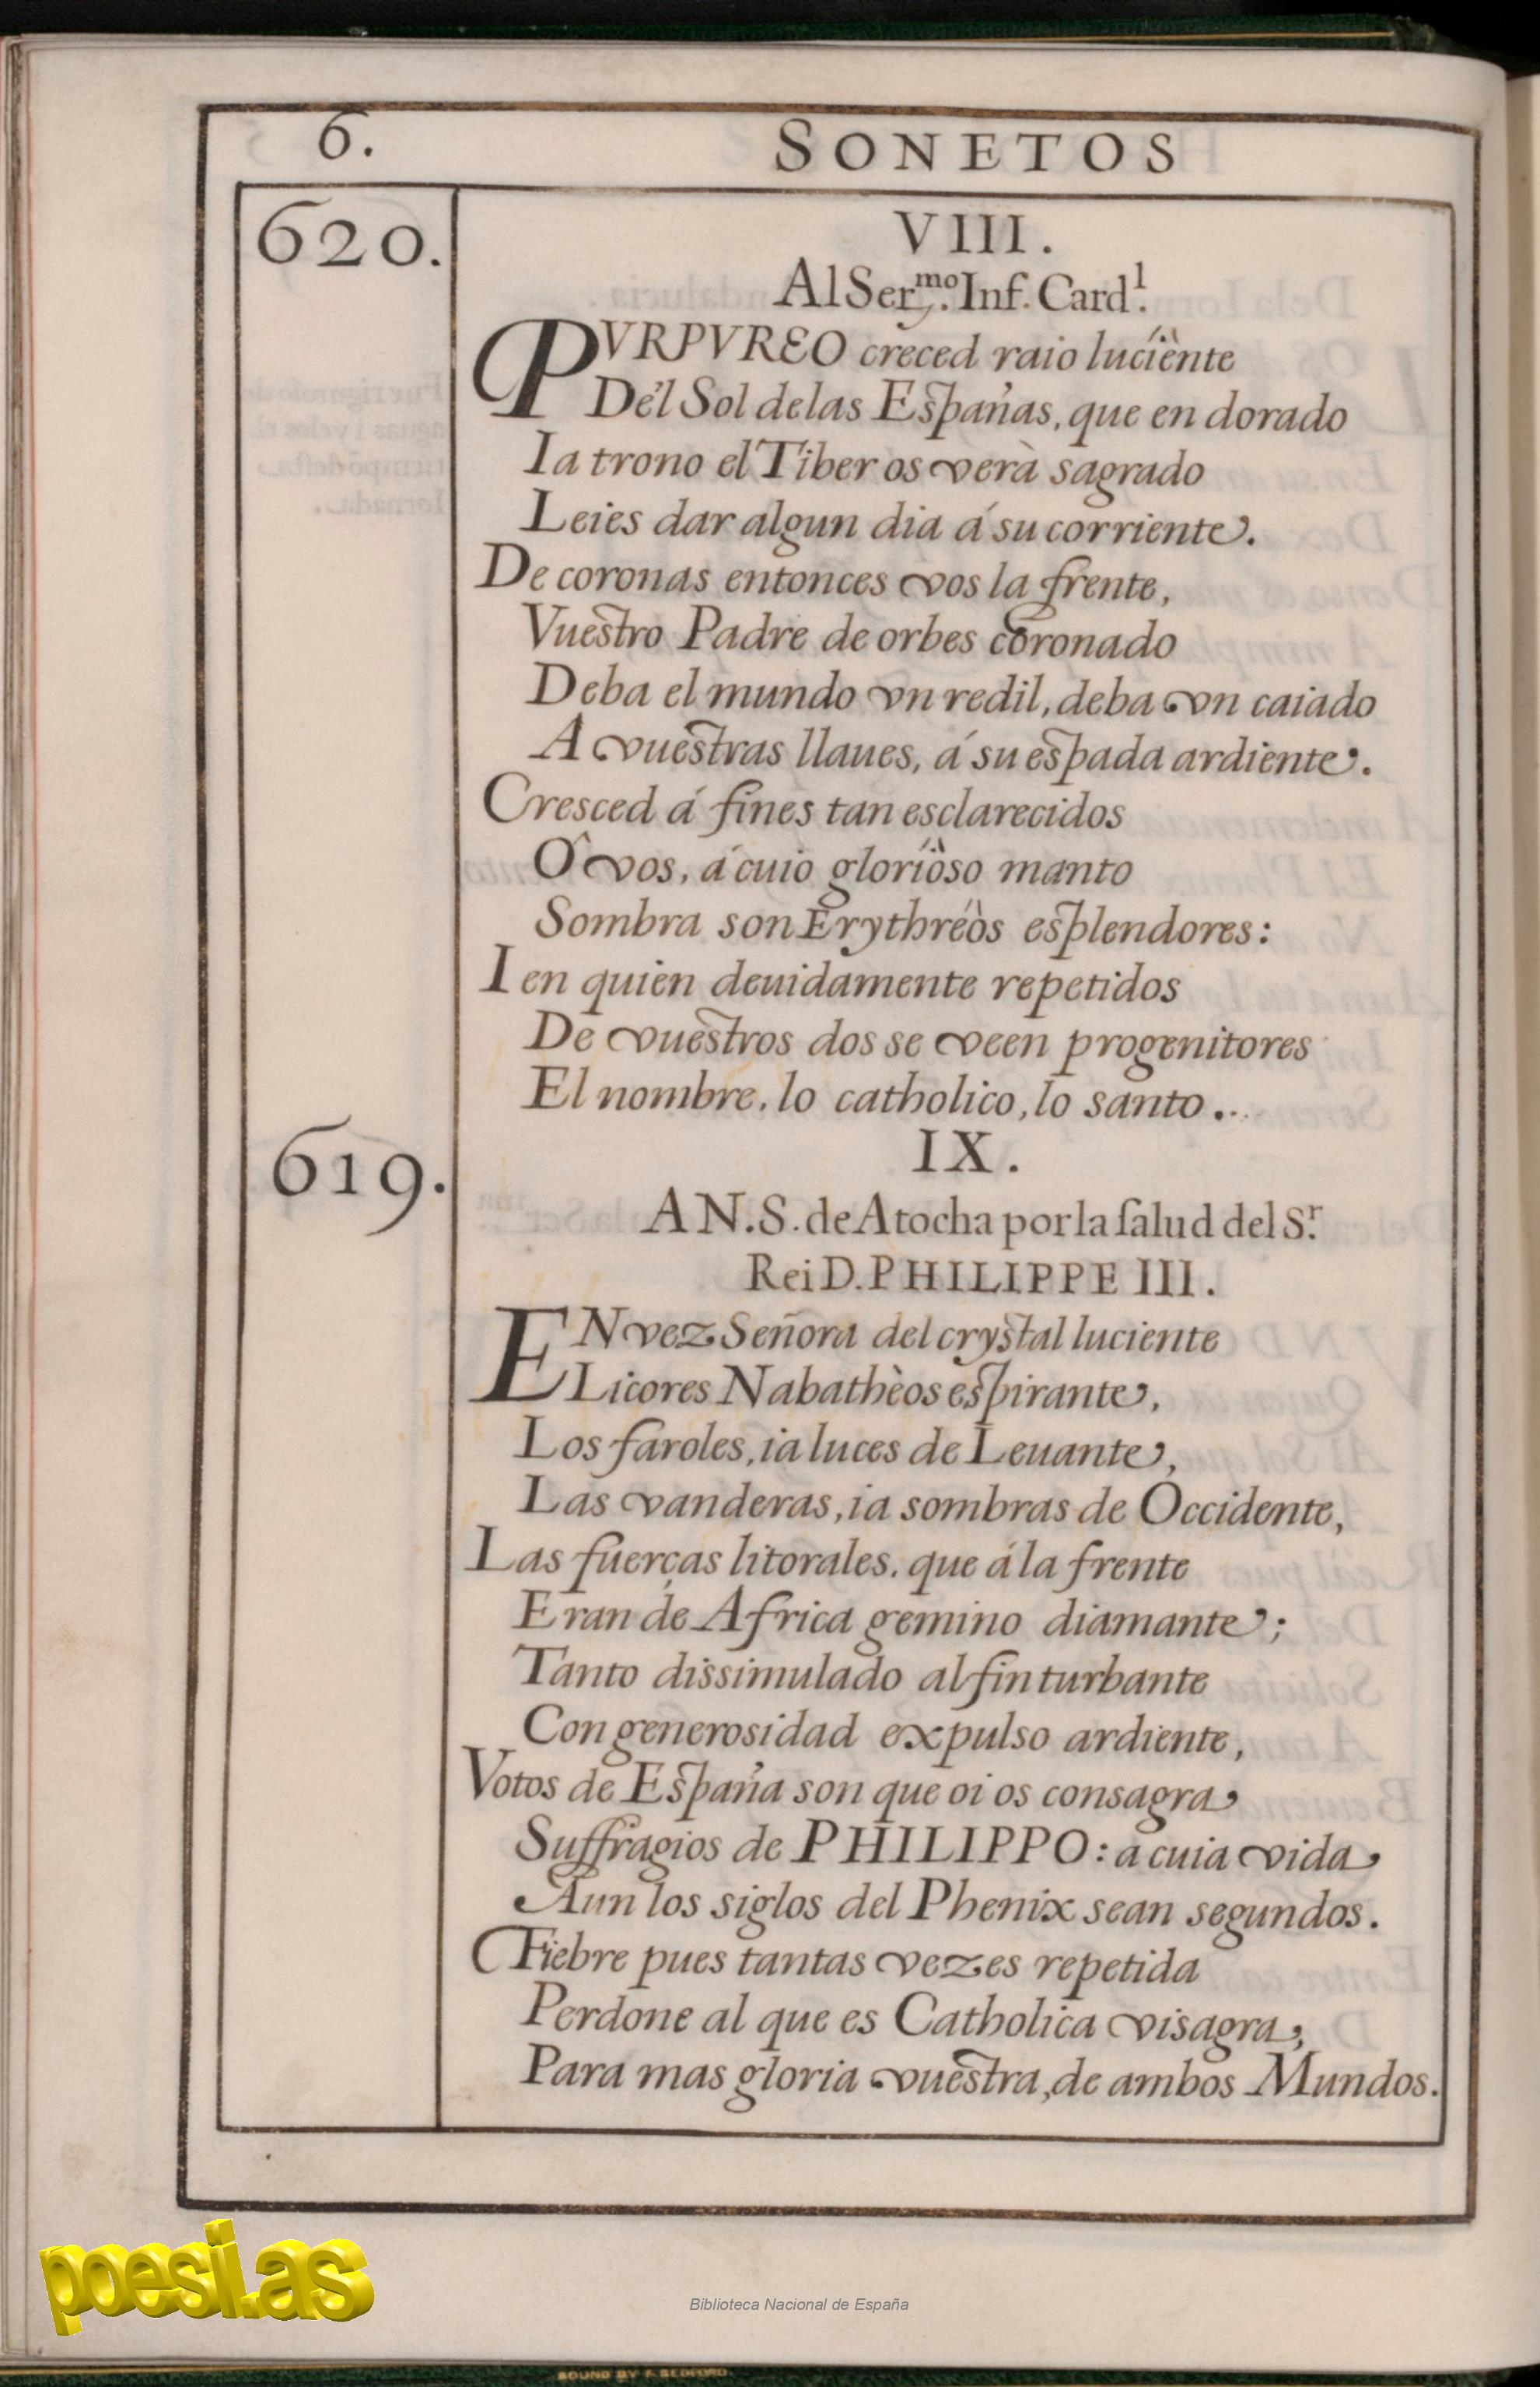 6.
SONETOS
620.
VIII.
Al Ser.mo Inf. Card.l
PVRPVREO creced raio lucíènte
Dél Sol de las Españas, que en dorado
Ia trono el Tiber os verà sagrado
Leies dar algun dia á su corriente.
De coronas entonces vos la frente,
Vuestro Padre de orbes coronado
Deba el mundo vn redil, deba vn caiado
A vuestras llaues, á su espada ardiente.
Cresced á fines tan esclarecidos
Ô vos, á cuio gloríòso manto
Sombra son Erythréòs esplendores:
I en quien deuidamente repetidos
De vuestros dos se veen progenitores
El nombre, lo catholico, lo santo...
619.
IX.
A N.S. de Atocha por la salud del S.r
Rei D. PHILIPPE III.
EN vez Señora del crystal luciente
Licores Nabathèos espirante,
Los faroles, ia luces de Leuante,
Las vanderas, ia sombras de Occidente,
Las fuerças litorales, que á la frente
Eran de Africa gemino diamante;
Tanto dissimulado al fin turbante
Con generosidad expulso ardiente,
Votos de España son que oi os consagra
Suffragios de PHILIPPO: a cuia vida
Aun los siglos del Phenix sean segundos.
Fiebre pues tantas vezes repetida
Perdone al que es Catholica visagra,
Para mas gloria vuestra, de ambos Mundos.
poesi.as
Biblioteca Nacional de España
BOUND BY F. BEDFORD